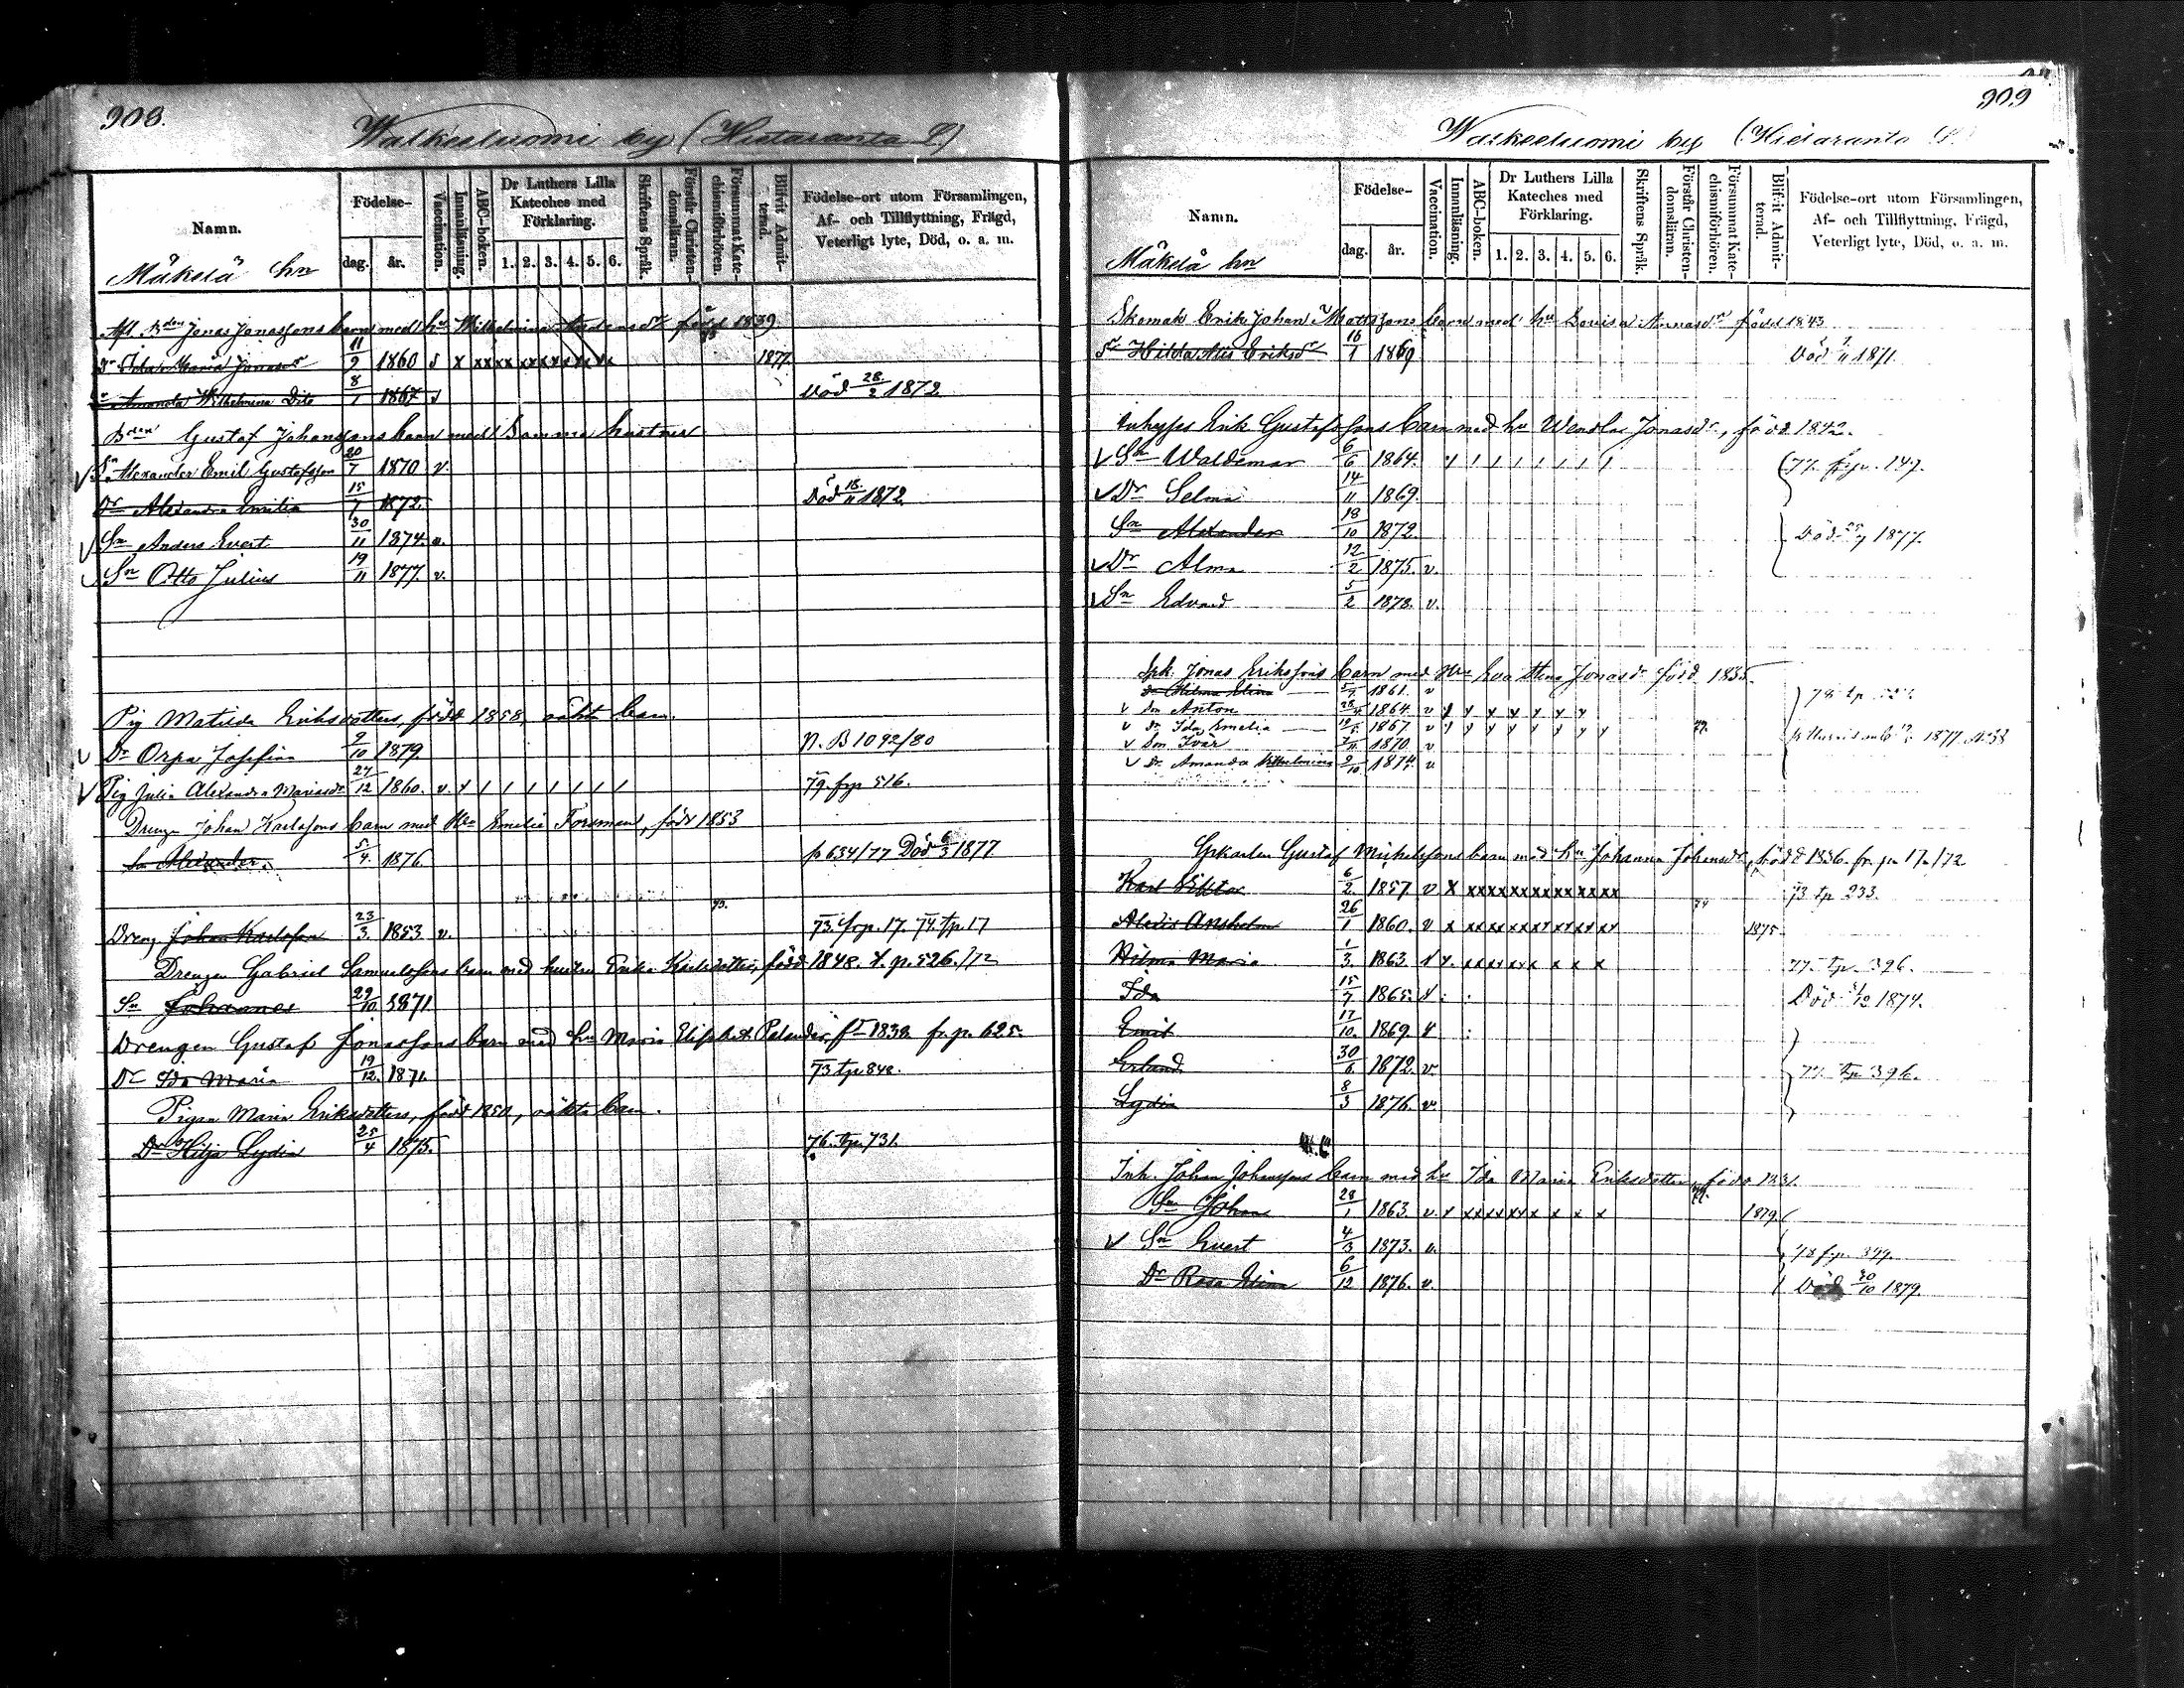 908.
Walkeeluomi by (Hietaranta L.)
Namn.
Födelse-
dag. år.
Vaccination.
Innanläsning.
ABC-boken.
Dr Luthers Lilla Kateches med Förklaring.
1. 2. 3. 4. 5. 6.
Skriftens Språk.
Förstår Christendomsläran.
Försummat Katechismiförhören.
Blifvit Admitterad.
Födelse-ort utom Församlingen, Af- och Tillflyttning, Frägd, Veterligt lyte, Död, o. a. m.
Mäkelä hn
Afl. Bden Jonas Jonassons barn med hu Wilhelmina född 1839.
Dr Maria Jonasdr 11/9 1860 x xxxx xxxxxxx 1877.
Amanda Wilhelmina Dito 8/1 1867 Död 28/2 1872
Bden Gustaf Johanssons barn med Samma hustru
Sn Alexander Emil Gustafsson 20/7 1870 v.
Dr Alexandra Emilia 15/7 1872. Död 18/11 1872
Sn Anders Evert 30/11 1874. v.
Sn Otto Julius 19/11 1877. v.
Pig Matilda Eriksdotters, född 1858, oäkta barn.
Dr Orpa Josefina 9/10 1879. N. B 1092/80
Pig Julia Alexandra Mariasdr 24/12 1860. v. 79. frp 516.
Drengen Johan Karlssons barn med Hu Emelia Forsman, född 1853
Sn Alexander. 5/4. 1876. p 634/77 Död 6/3 1877
Dreng Johan Karlsson 23/3. 1853. v. 73. frp. 17. 74. tp. 17
Drengen Gabriel Samuelssons barn med hustru Erika Karlsdotter, född 1848. f. p. 526./72
Sn Johannes 29/10 1871
Drengen Gustaf Jonassons barn med hu Maria Elisabet Palander, fd 1838 fr. p. 625.
Dr Ida Maria 19/12. 1871. 73 tp. 848.
Pigan Maria Eriksdotters, född 1850, oäkta barn.
Dr Hilja Lydia 25/4 1875. 76. tp. 731.
909
Walkeeluomi by (Hietaranta L.)
Namn.
Födelse-
dag. år.
Vaccination.
Innanläsning.
ABC-boken.
Dr Luthers Lilla Kateches med Förklaring.
1. 2. 3. 4. 5. 6.
Skriftens Språk.
Förstår Christendomsläran.
Försummat Katechismiförhören.
Blifvit Admitterad.
Födelse-ort utom Församlingen, Af- och Tillflyttning, Frägd, Veterligt lyte, Död, o. a. m.
Mäkelä hn
Skomak Erik Johan Mattssons barn med hu Lovisa född 1843
Dr Hilda Eriksdr 16/1 1869 Död 1871.
Inhyses Erik Gustafssons barn med hu Wendla Jonasdr, född 1842.
Sn Waldemar 6/6 1864. 77. frp. 147.
Dr Selma 14/11 1869.
Sn Alexander 18/10 1872. Död 1877.
Dr Alma 12/2 1875. v.
Sn Edvard 5/2 1878. v.
Jonas Erikssons barn med Hu Eva Stina Jonasdr född 1835
dr Hilma Elina 1861. v
Son Anton 1864. v y y y y y y
dr. Ida Amelia 1867. v
Son Ivar 1870. v
Dr. Amanda Wilhelmina 9/10 1874. v
Gustaf Michelssons barn med hu Johanna Johansdr, född 1836. fr. p. /72
Karl Viktor 6/2. 1857 v x xxxxxxxxxxxxxx 73 tp 233.
Alexis Anshelm 26/1 1860. v x 1875
Hilma Maria 1/3. 1863. 77. tp. 396.
Ida 15/7 1865. Död /12 1874.
Emil 17/10. 1869.
Erland 30/6 1872. v. 77. tp 396.
Lydia 8/3 1876. v.
Inh. Johan Johanssons barn med hu Ida Maria Eriksdotter, född 1831.
Sn Johan 28/1 1863. v. x xxxxxxx x x x 1879.
Sn Evert 4/3 1873. v. 78 frp. 399.
Dr Rosa Elina 6/12 1876. v. Död 30/10 1879.